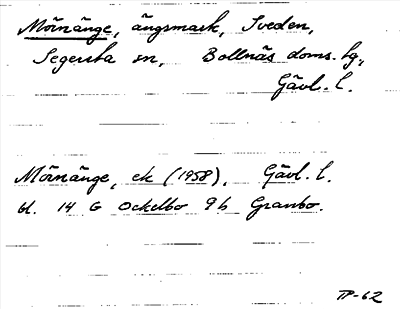 Mörnänge, ängsmark, Sveden,
Segersta sn, Bollnäs doms. hg.,
Gävl. l.
Mörnänge, ek (1958), Gävl. l.
bl. 14 G Ockelbo 9 b Granbo.
TP-62